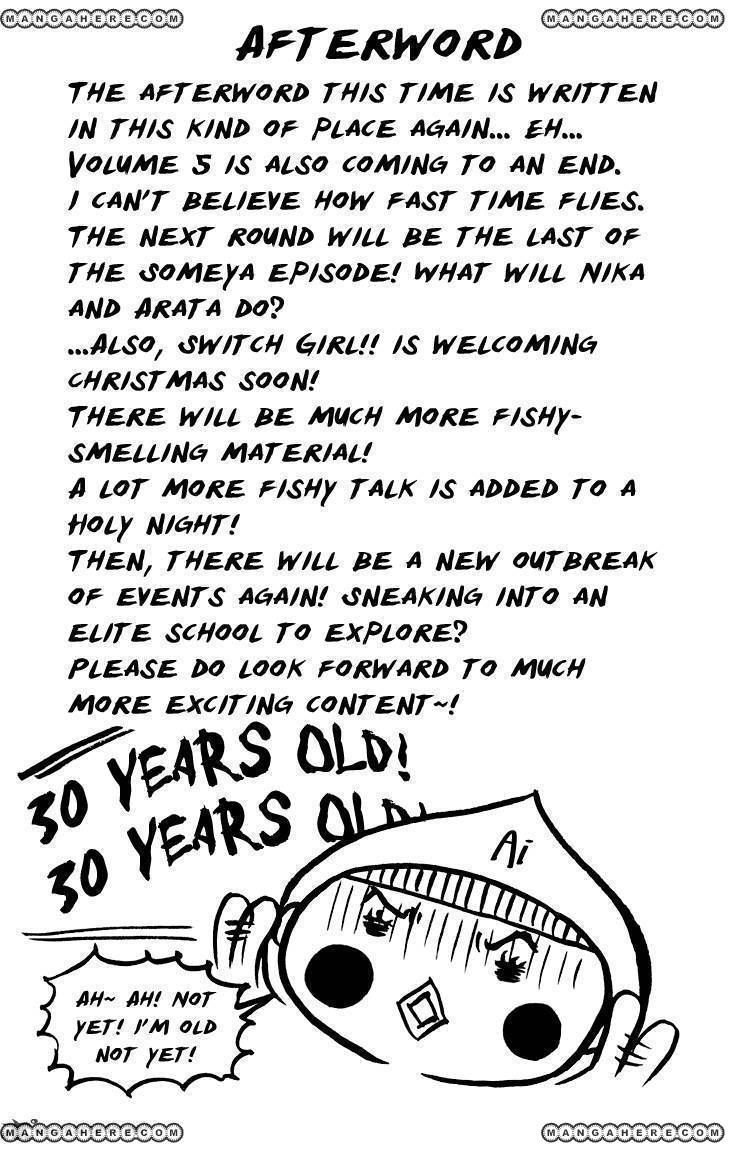 MANGAHERE.COM MANGAHERE.COM
AFTERWORD
THE AFTERWORD THIS TIME IS WRITTEN
IN THIS KIND OF PLACE AGAIN... EH...
VOLUME 5 IS ALSO COMING TO AN END.
I CAN'T BELIEVE HOW FAST TIME FLIES.
THE NEXT ROUND WILL BE THE LAST OF
THE SOMEYA EPISODE! WHAT WILL NIKA
AND ARATA DO?
...ALSO, SWITCH GIRL!! IS WELCOMING
CHRISTMAS SOON!
THERE WILL BE MUCH MORE FISHY-
SMELLING MATERIAL!
A LOT MORE FISHY TALK IS ADDED TO A
HOLY NIGHT!
THEN, THERE WILL BE A NEW OUTBREAK
OF EVENTS AGAIN! SNEAKING INTO AN
ELITE SCHOOL TO EXPLORE?
PLEASE DO LOOK FORWARD TO MUCH
MORE EXCITING CONTENT~!
30 YEARS OLD!
30 YEARS OLD!
Ai
AH~ AH! NOT
YET! I'M OLD
NOT YET!
MANGAHERE.COM MANGAHERE.COM